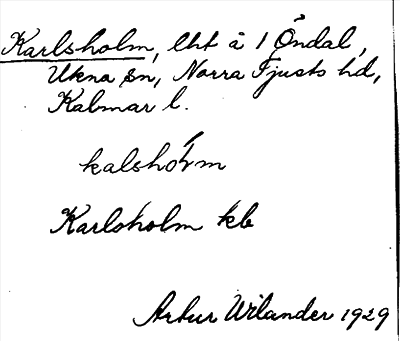 Karlsholm, lht å 1 Öndal,
Ukna sn, Norra Tjusts hd,
Kalmar l.
kalshólm
Karlsholm kb
Artur Wilander 1929